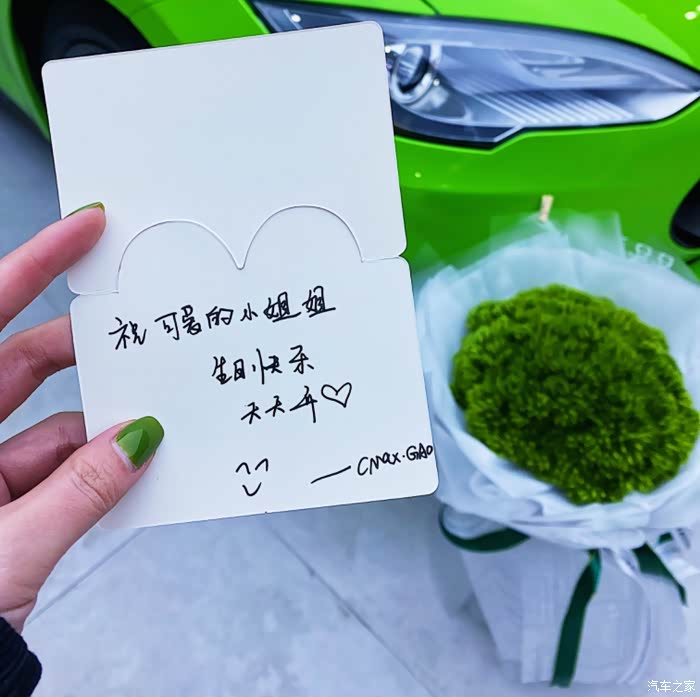 祝可爱的小姐姐
生日快乐
天天开♡
—CMax.GAO
汽车之家